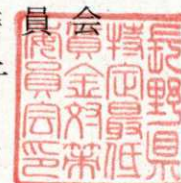 員会
長野県
特定最低
賃金対策
委員会印